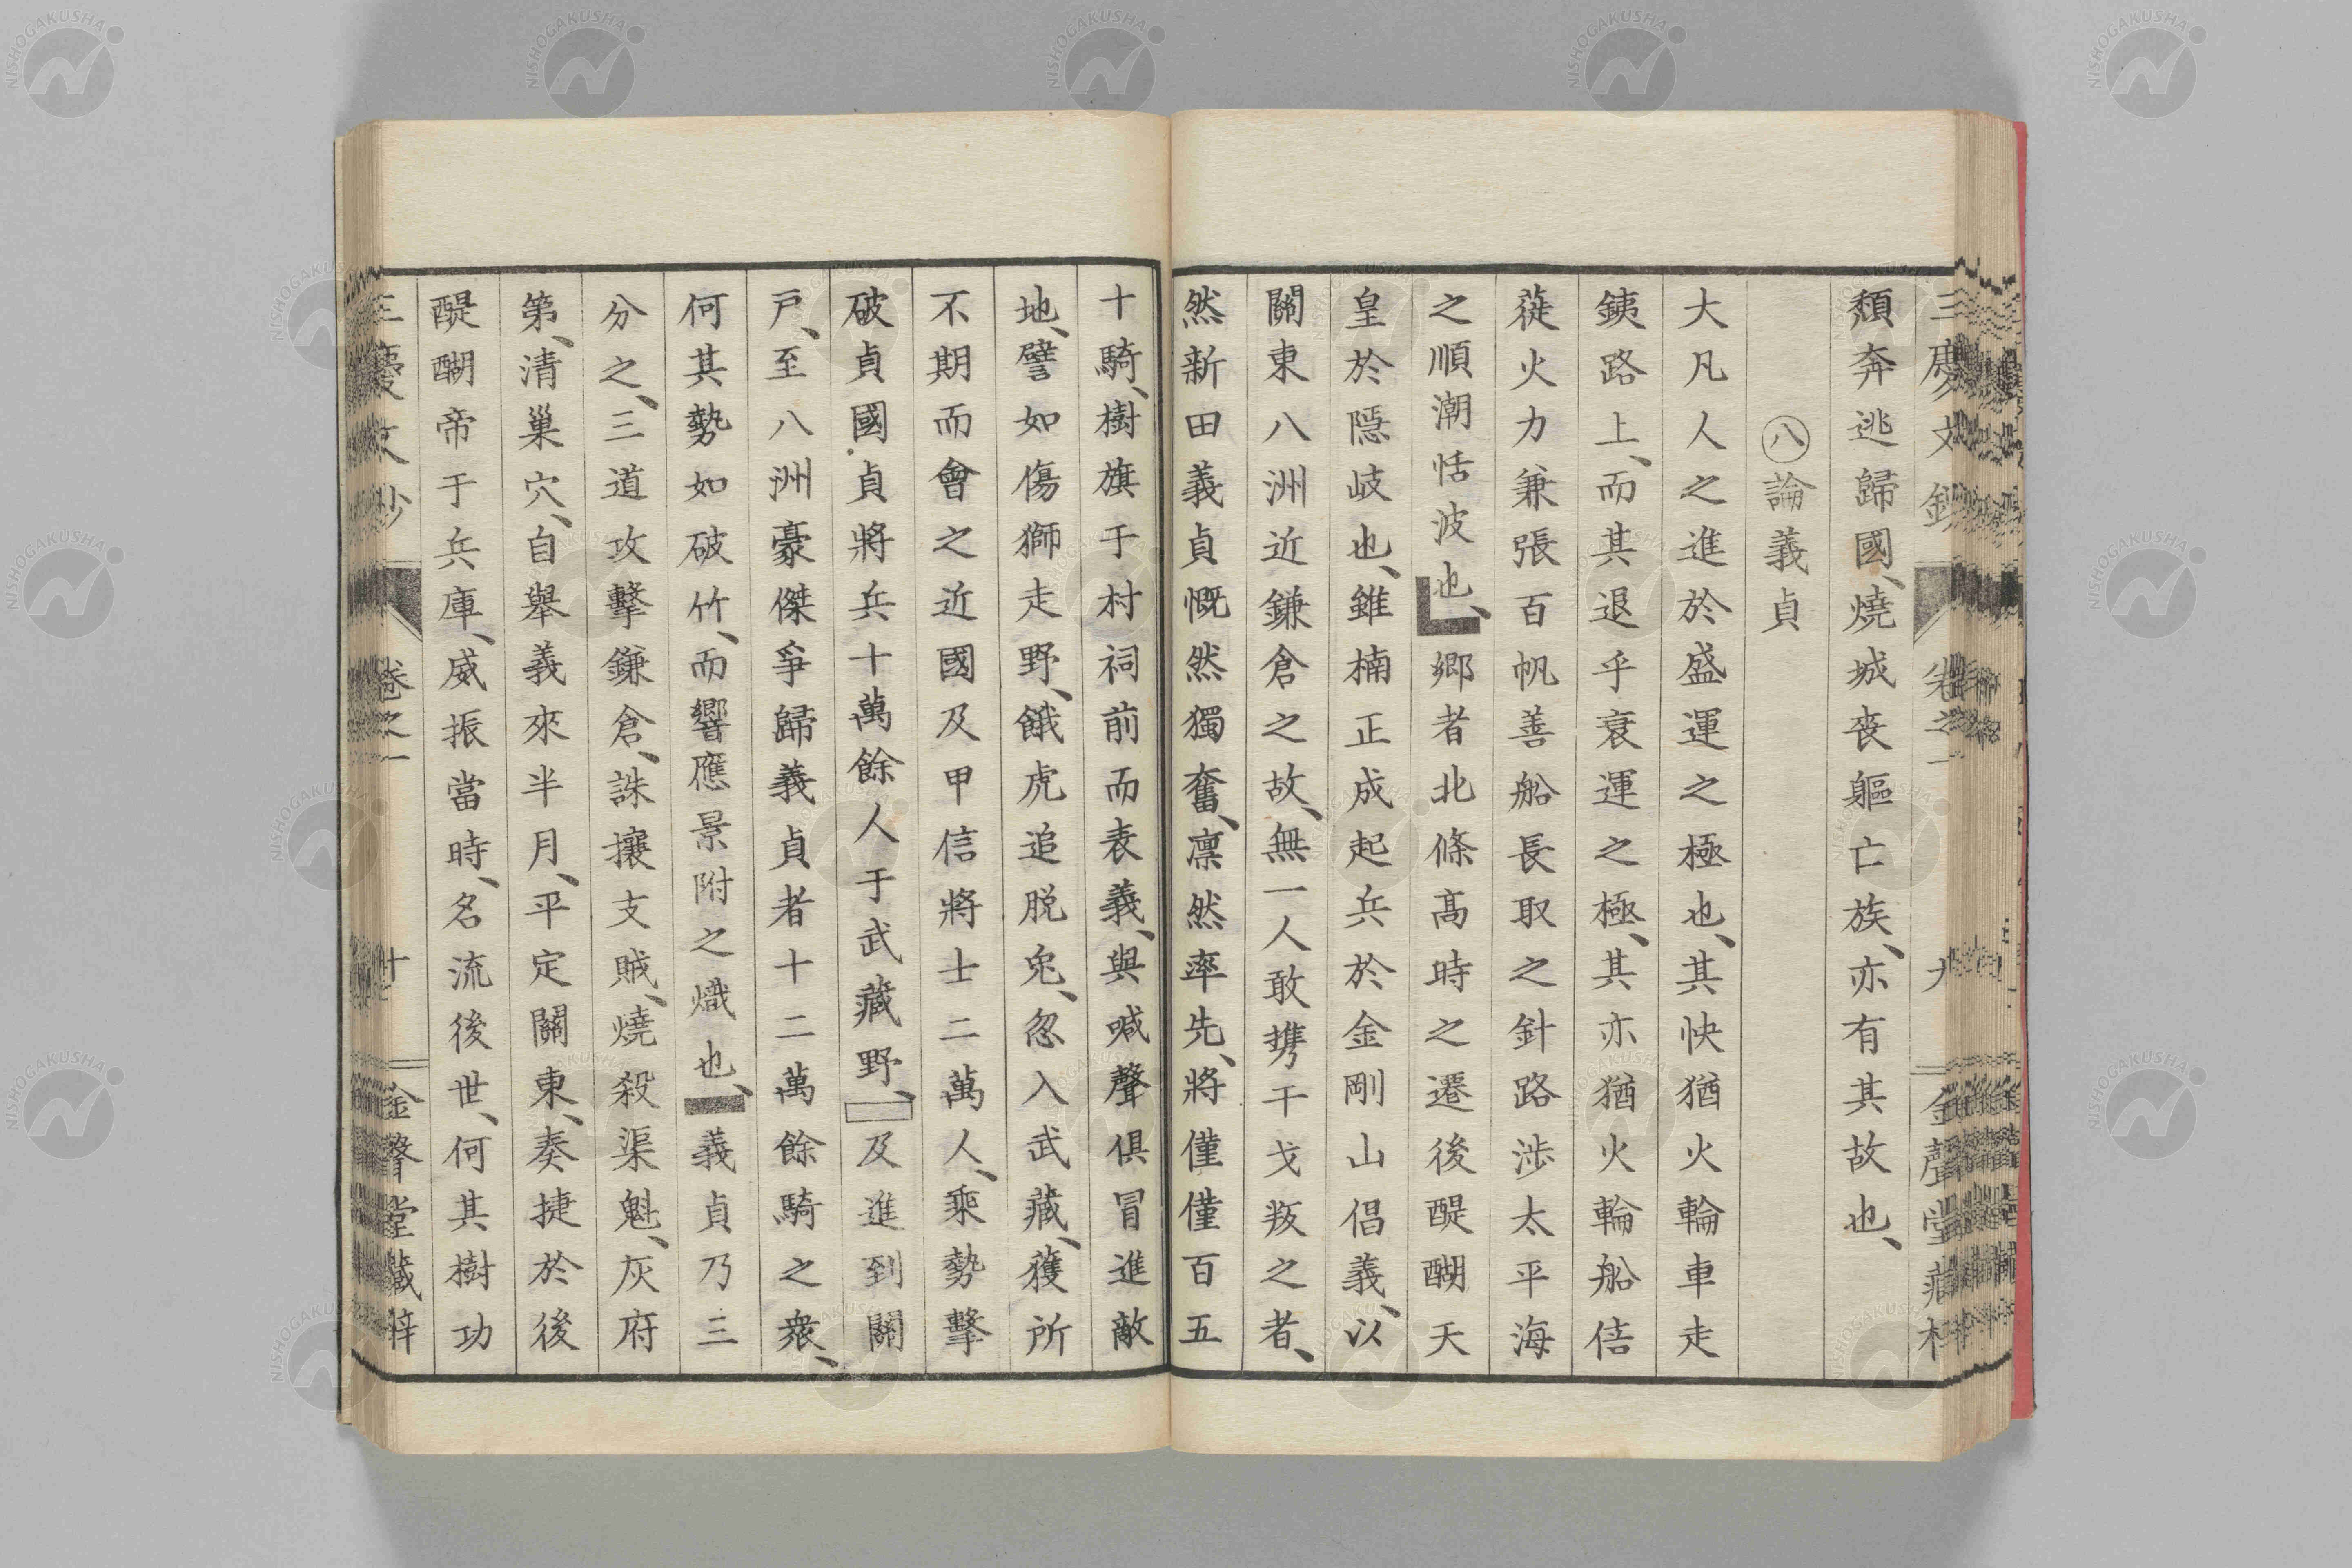 三慶文鈔 卷之一 九 金聲堂藏梓
頽奔逃歸國、燒城喪軀亡族、亦有其故也、
㊇論義貞
大凡人之進於盛運之極也、其快猶火輪車走
銕路上、而其退乎衰運之極、其亦猶火輪船倍
蓰火力兼張百帆善船長取之針路涉太平海
之順潮恬波也、鄉者北條高時之遷後醍醐天
皇於隱岐也、雖楠正成起兵於金剛山倡義、以
關東八洲近鎌倉之故、無一人敢携干戈叛之者、
然新田義貞慨然獨奮、凛然率先、將僅僅百五
十騎、樹旗于村祠前而表義、與喊聲俱冒進敵
地、譬如傷獅走野、餓虎追脱兔、忽入武藏、獲所
不期而會之近國及甲信將士二萬人、乘勢擊
破貞國貞將兵十萬餘人于武藏野、及進到關
戸、至八洲豪傑爭歸義貞者十二萬餘騎之衆、
何其勢如破竹、而響應景附之熾也、義貞乃三
分之、三道攻擊鎌倉、誅攘支賊、燒殺渠魁、灰府
第、清巢穴、自舉義來半月、平定關東、奏捷於後
醍醐帝于兵庫、威振當時、名流後世、何其樹功
三慶文鈔 卷之一 十 金聲堂藏梓
NISHOGAKUSHA